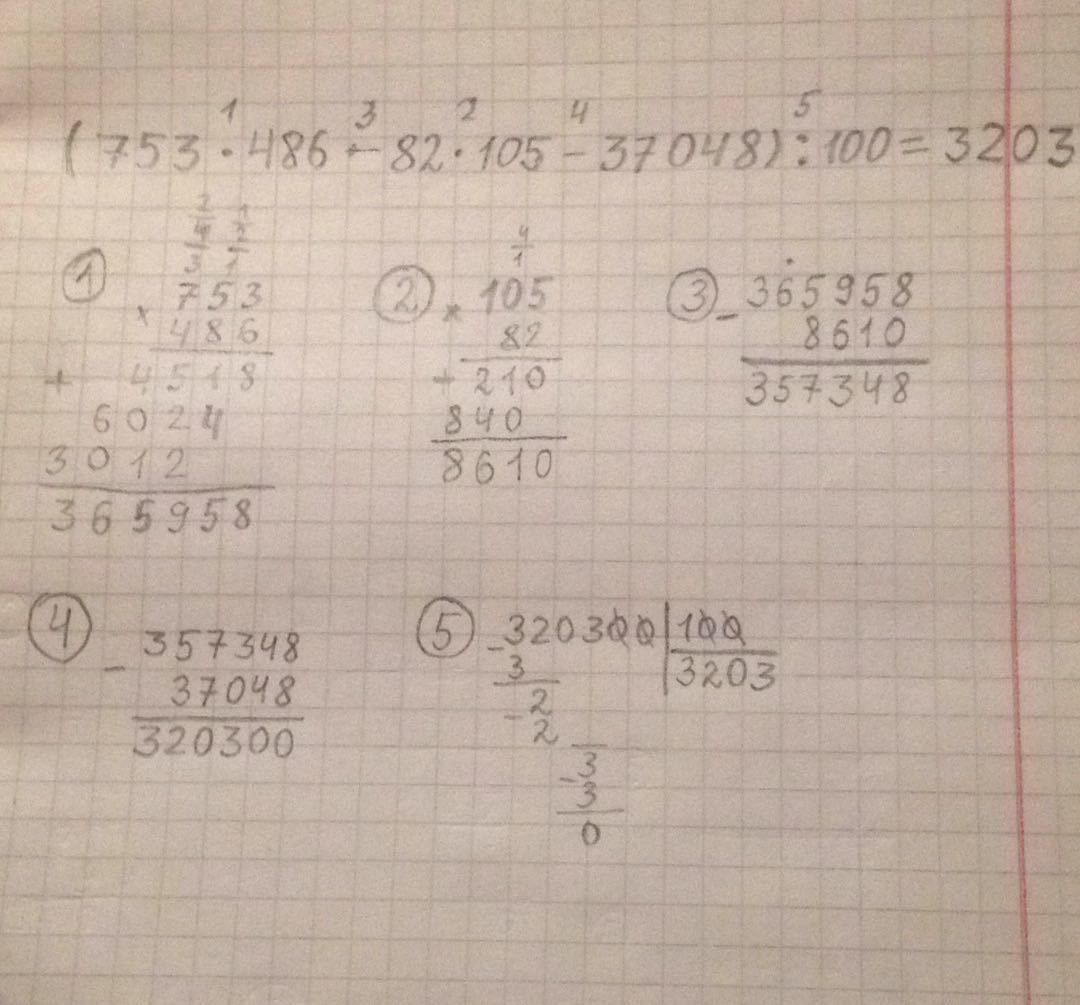 1 3 2 4 5
(753·486-82·105-37048):100=3203
①
2 1
4 2
3 1
× 753
486
+ 4518
6024
3012
365958
②
4
1
× 105
82
+ 210
840
8610
③ - 365958
8610
357348
④ - 357348
37048
320300
⑤ - 320300 | 100
3 3203
- 2
2
- 3
3
0